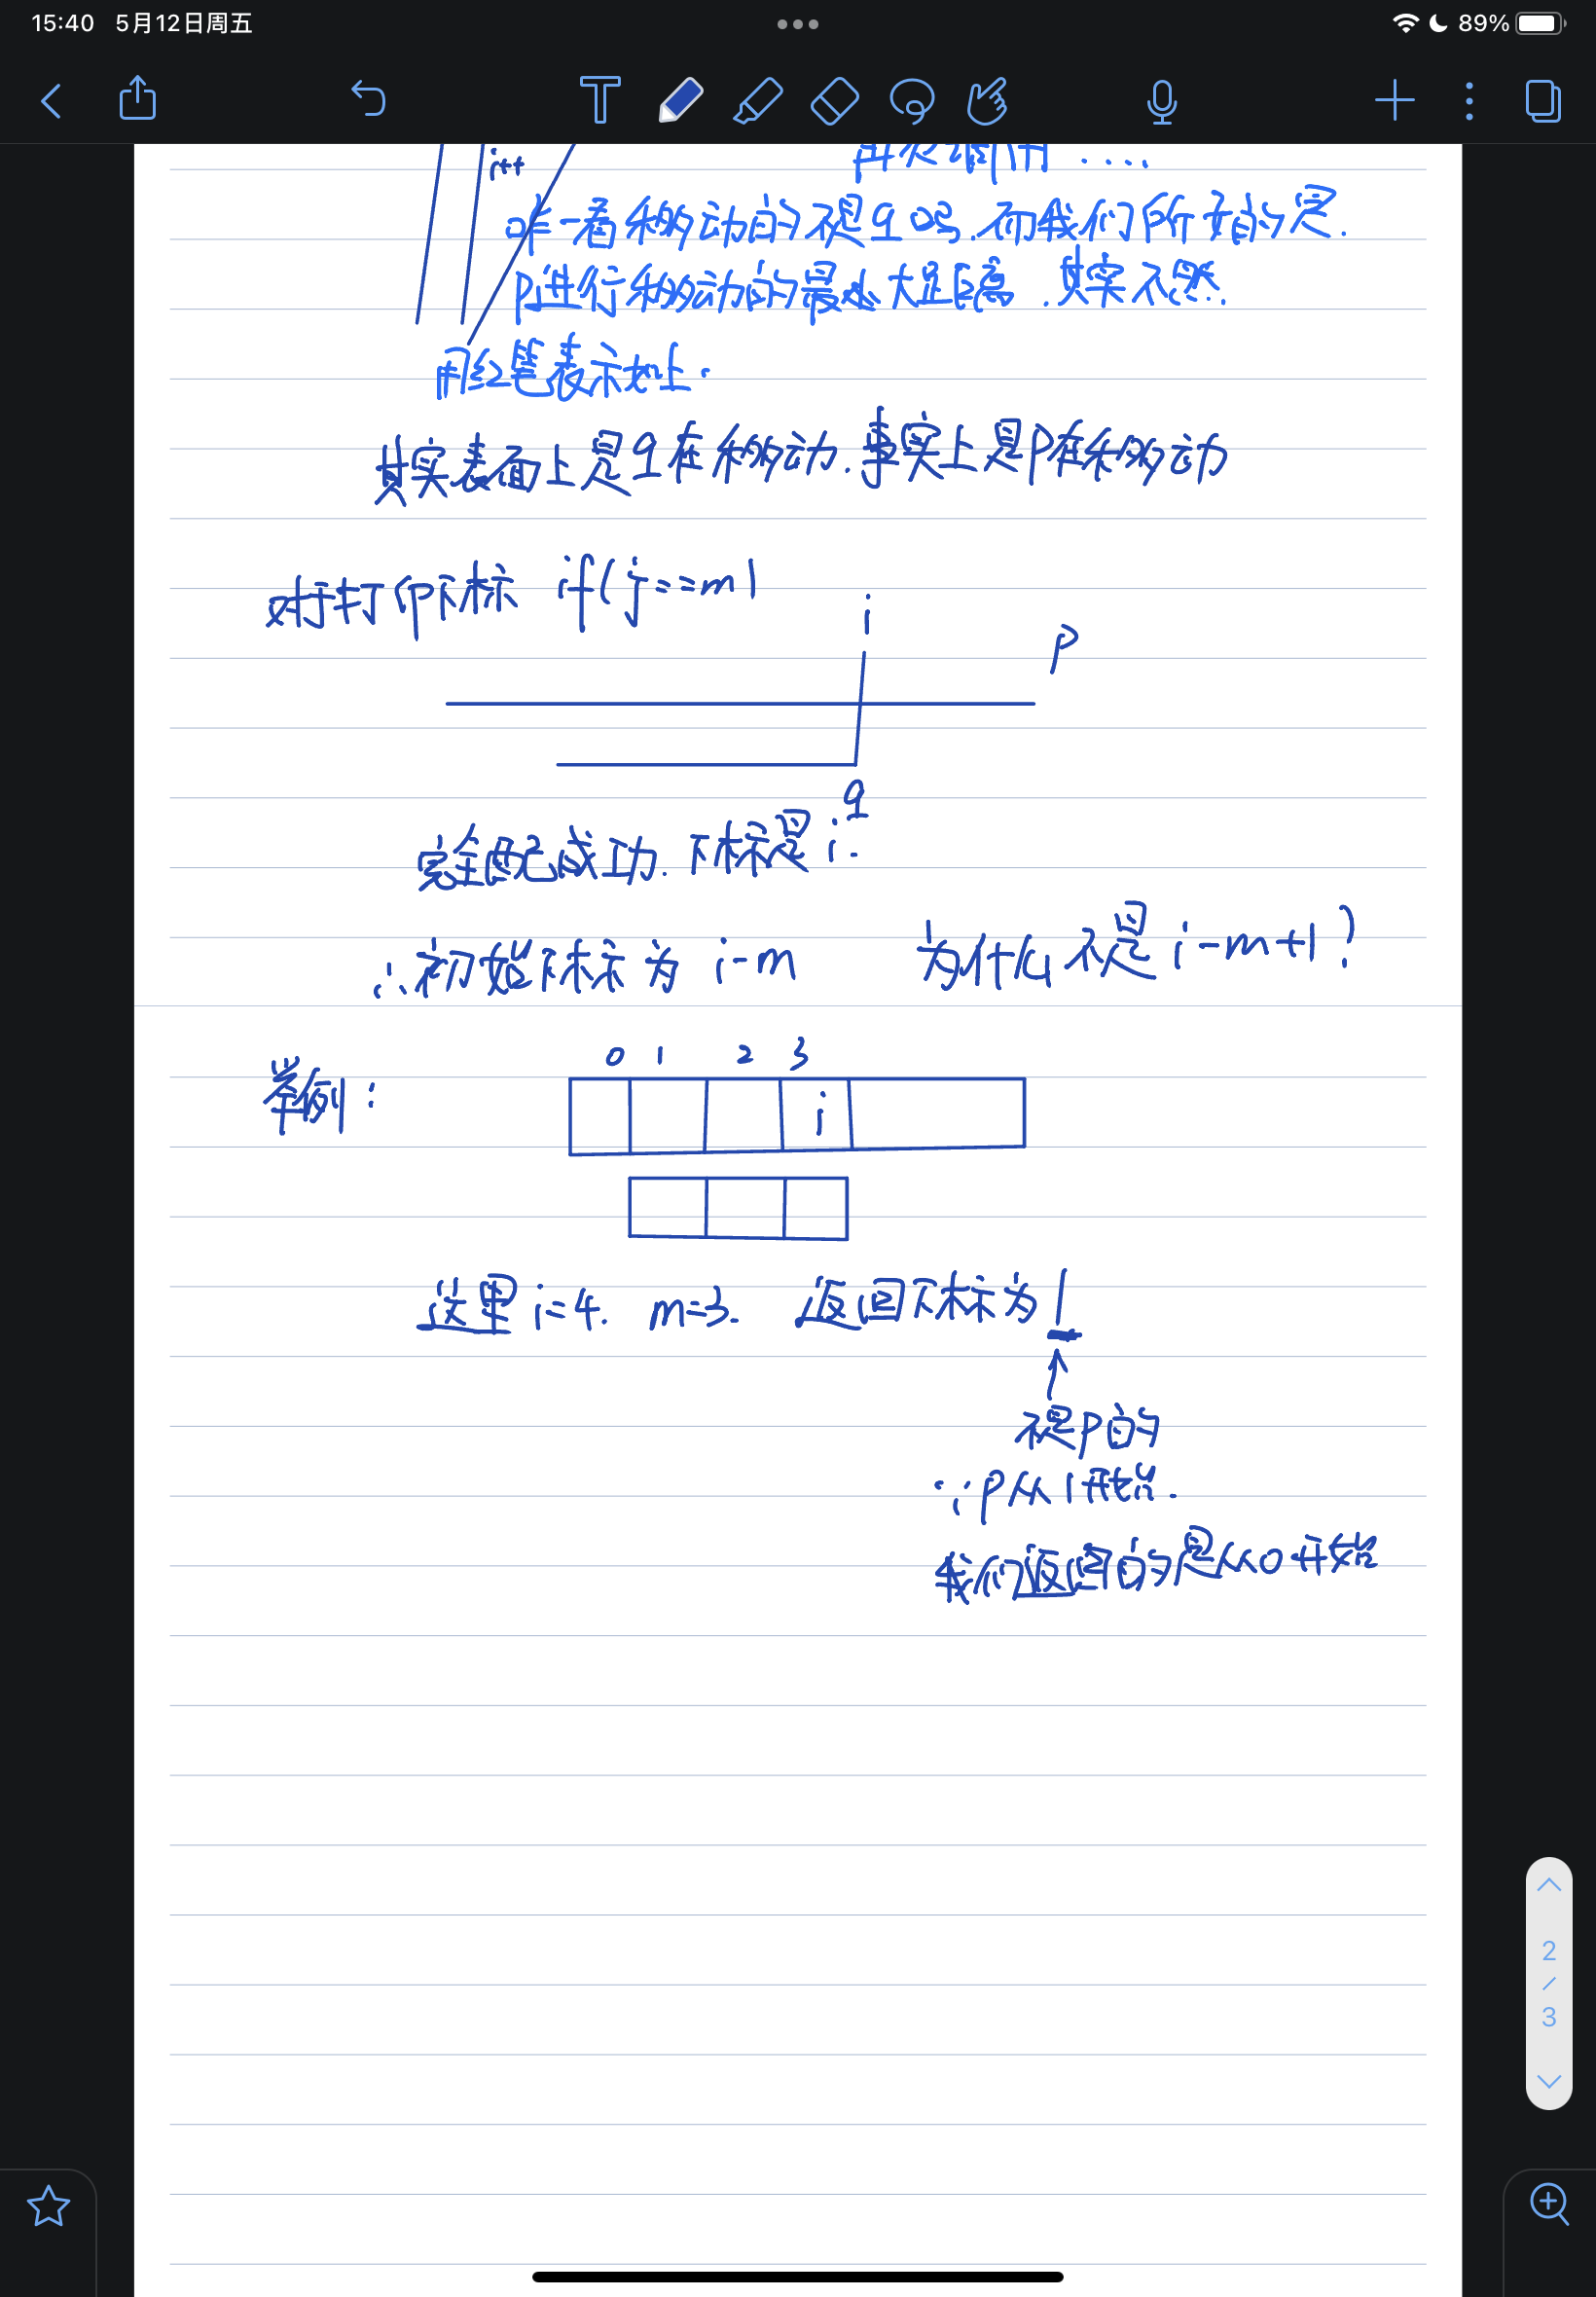 15:40 5月12日周五
89%
i++
再次调用 ....
乍一看移动的不是q吗.而我们所求的是.
P进行移动的最大距离.其实不然.
用红笔表示如上.
其实表面上是q在移动.事实上是P在移动
对于打印下标 if(j==m)
i
P
q
完全匹配成功.下标是i.
∴初始下标为 i-m 为什么不是i-m+1?
0 1 2 3
举例:
i
这里i=4. m=3. 返回下标为1
不是P的
∵P从1开始.
我们返回的是从0开始
2
/
3